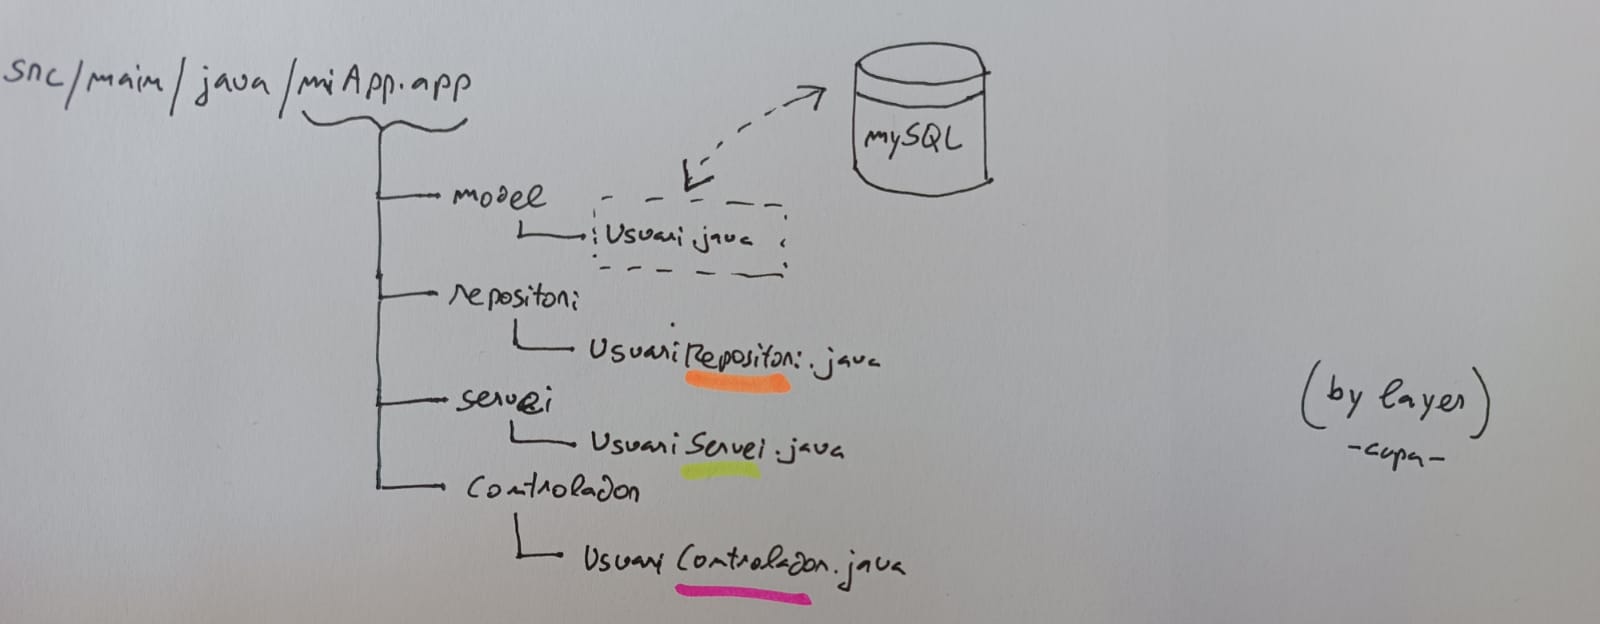 src/main/java/miApp.app
mySQL
model
Usuari.java
repositori
UsuariRepositori.java
servei
UsuariServei.java
Controlador
UsuariControlador.java
(by layer)
-capa-